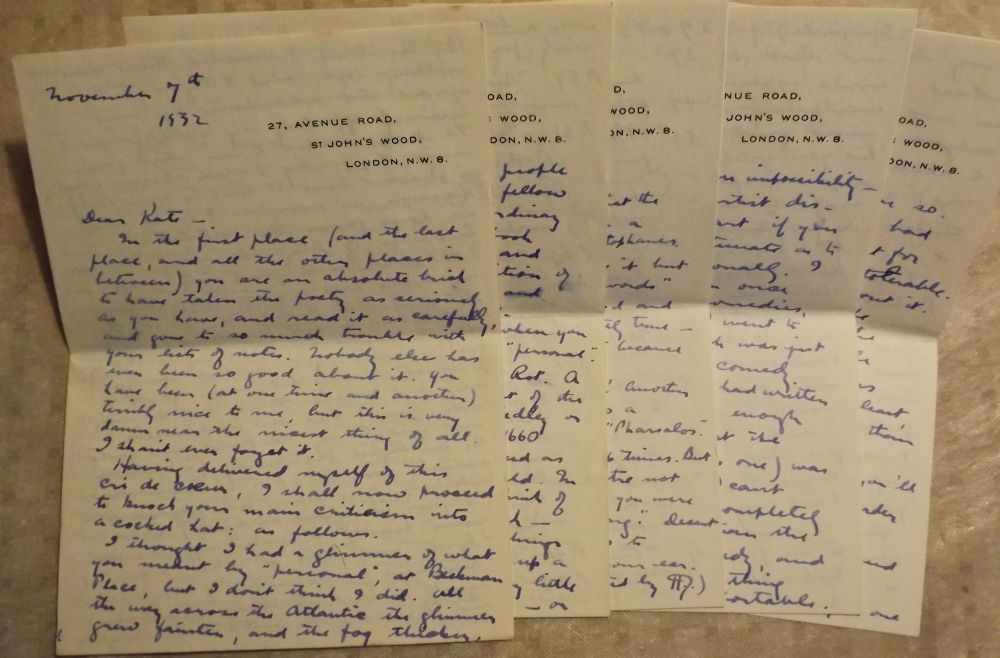 November 7th
1932
27, AVENUE ROAD,
ST JOHN'S WOOD,
LONDON, N.W. 8.
Dear Kate —
In the first place (and the last
place, and all the other places in
between) you are an absolute brick
to have taken the poetry as seriously
as you have, and read it as carefully,
and gone to so much trouble with
your lists of notes. Nobody else has
ever been so good about it. You
have been (at one time and another)
terribly nice to me, but this is very
damn near the nicest thing of all.
I shan't ever forget it.
Having delivered myself of this
cri de cœur, I shall now proceed
to knock your main criticism into
a cocked hat: as follows.
I thought I had a glimmer of what
you meant by "personal", at Beekman
Place, but I don't think I did. All
the way across the Atlantic the glimmer
grew fainter, and the fog thicker,
OAD,
S WOOD,
DON, N.W. 8.
people
fellow
rdinary
ook
and
tion of
and
when you
"personal".
Rot. A
t of the
dley or
1660
ed as
ld. In
h —
things
up a
y little
— or
D,
WOOD,
ON, N.W. 8.
at the
a
tophanes.
it but
words"
d and
tly true —
because
Another
s a
"Pharsalos".
6 times. But
the not
you were
ng". Desert
s to
our ear.
d by
NUE ROAD,
JOHN'S WOOD,
LONDON, N.W. 8.
n impossibility —
rtist dis-
art if you
tunate as to
onally. I
n once
omedies,
went to
h was just
comedy
had written
enough
t the
one) was
can't
ompletely
ion the
dy, and
thing
ortable.
OAD,
S WOOD,
DON, N.W. 8.
e so.
had
t for
tolerable.
out it.
least
than
ou'll
rder
and
one